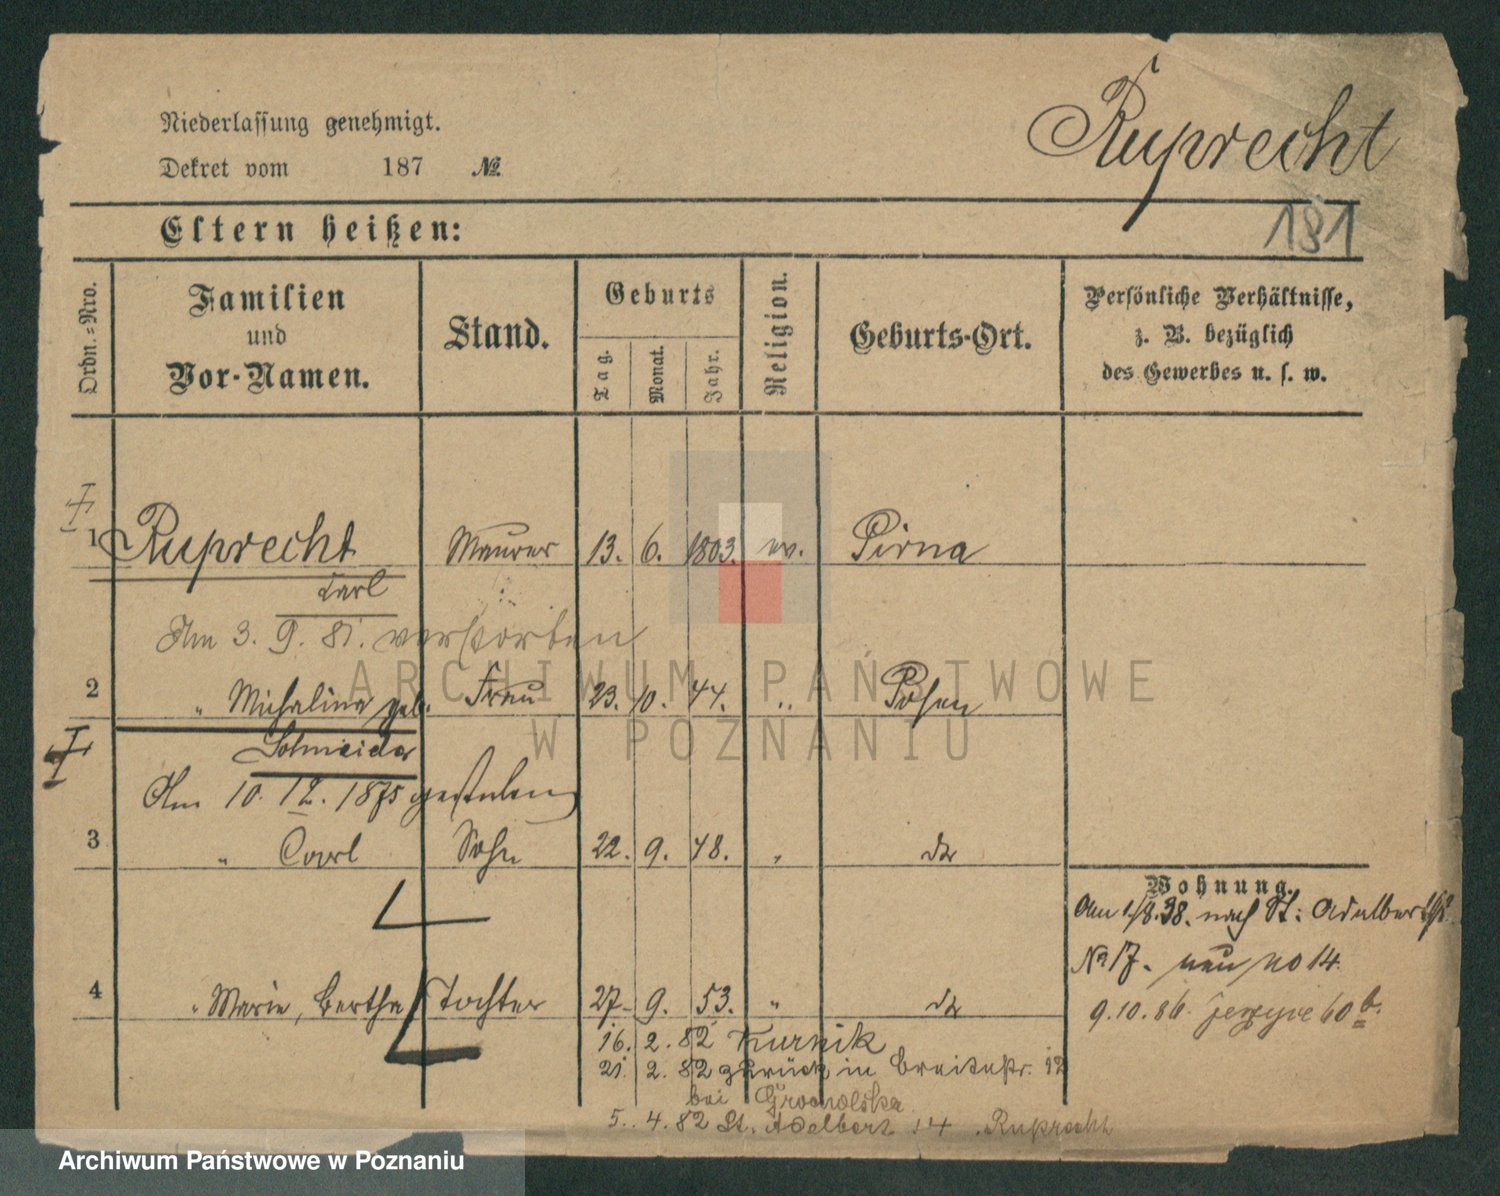 Niederlassung genehmigt.
Dekret vom 187 №
Ruprecht
181
Eltern heißen:
Ordn.=Nro.
Familien
und
Vor-Namen.
Stand.
Geburts
Tag.
Monat.
Jahr.
Religion.
Geburts-Ort.
Persönliche Verhältnisse,
z. B. bezüglich
des Gewerbes u. s. w.
1 Ruprecht Maurer 13. 6. 1803. ev. Pirna
Carl
Am 3. 9. 81. verstorben
2 " Michalina geb. Frau 23. 10. 44. " Posen
Schneider
Am 10. 12. 1875 gestorben
3 " Carl Sohn 22. 9. 48. " do
4 " Marie, Bertha Tochter 27. 9. 53. " do
16. 2. 82 Kurnik
21. 2. 82 zurück in Breitestr. 12
bei Grocholska
5. 4. 82 St. Adelbert 14 Ruprecht
Wohnung.
Am 1./8. 38. nach St. Adelbert
№ 17. neu no 14.
9. 10. 86. 60 b.
ARCHIWUM PAŃSTWOWE
W POZNANIU
Archiwum Państwowe w Poznaniu